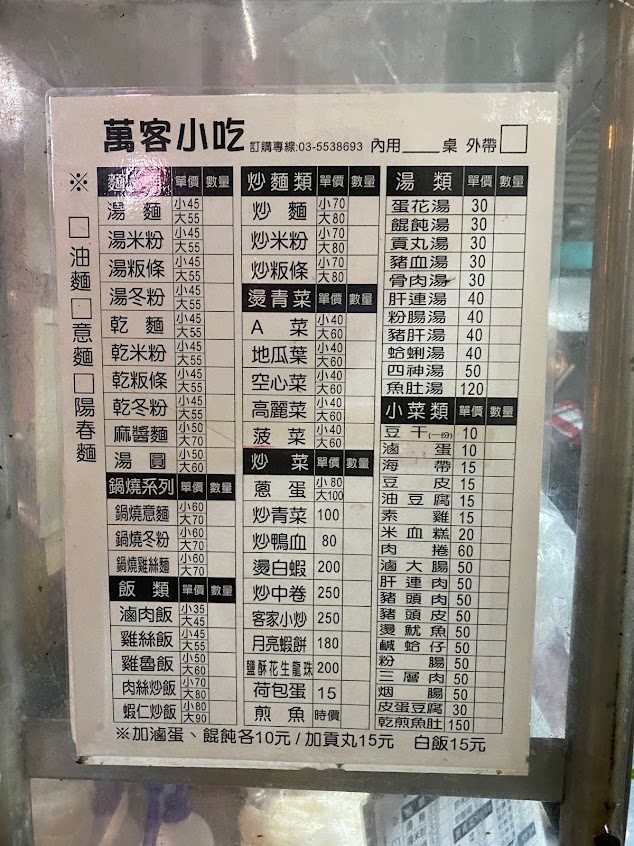 萬客小吃 訂購專線:03-5538693 內用____桌 外帶□
※ □油麵 □意麵 □陽春麵
麵 單價 數量
湯麵 小45 大55
湯米粉 小45 大55
湯粄條 小45 大55
湯冬粉 小45 大55
乾麵 小45 大55
乾米粉 小45 大55
乾粄條 小45 大55
乾冬粉 小45 大55
麻醬麵 小50 大70
湯圓 小50 大60
鍋燒系列 單價 數量
鍋燒意麵 小60 大70
鍋燒冬粉 小60 大70
鍋燒雞絲麵 小60 大70
飯類 單價 數量
滷肉飯 小35 大45
雞絲飯 小45 大55
雞魯飯 小50 大60
肉絲炒飯 小70 大80
蝦仁炒飯 小80 大90
炒麵類 單價 數量
炒麵 小70 大80
炒米粉 小70 大80
炒粄條 小70 大80
燙青菜 單價 數量
A菜 小40 大60
地瓜葉 小40 大60
空心菜 小40 大60
高麗菜 小40 大60
菠菜 小40 大60
炒菜 單價 數量
蔥蛋 小80 大100
炒青菜 100
炒鴨血 80
燙白蝦 200
炒中卷 250
客家小炒 250
月亮蝦餅 180
鹽酥花生龍珠 200
荷包蛋 15
煎魚 時價
湯類 單價 數量
蛋花湯 30
餛飩湯 30
貢丸湯 30
豬血湯 30
骨肉湯 30
肝連湯 40
粉腸湯 40
豬肝湯 40
蛤蜊湯 40
四神湯 50
魚肚湯 120
小菜類 單價 數量
豆干(一份) 10
滷蛋 10
海帶 15
豆皮 15
油豆腐 15
素雞 15
米血糕 20
肉捲 60
滷大腸 50
肝連肉 50
豬頭肉 50
豬頭皮 50
燙魷魚 50
鹹蛤仔 50
粉腸 50
三層肉 50
烟腸 50
皮蛋豆腐 30
乾煎魚肚 150
※加滷蛋、餛飩各10元 / 加貢丸15元 白飯15元